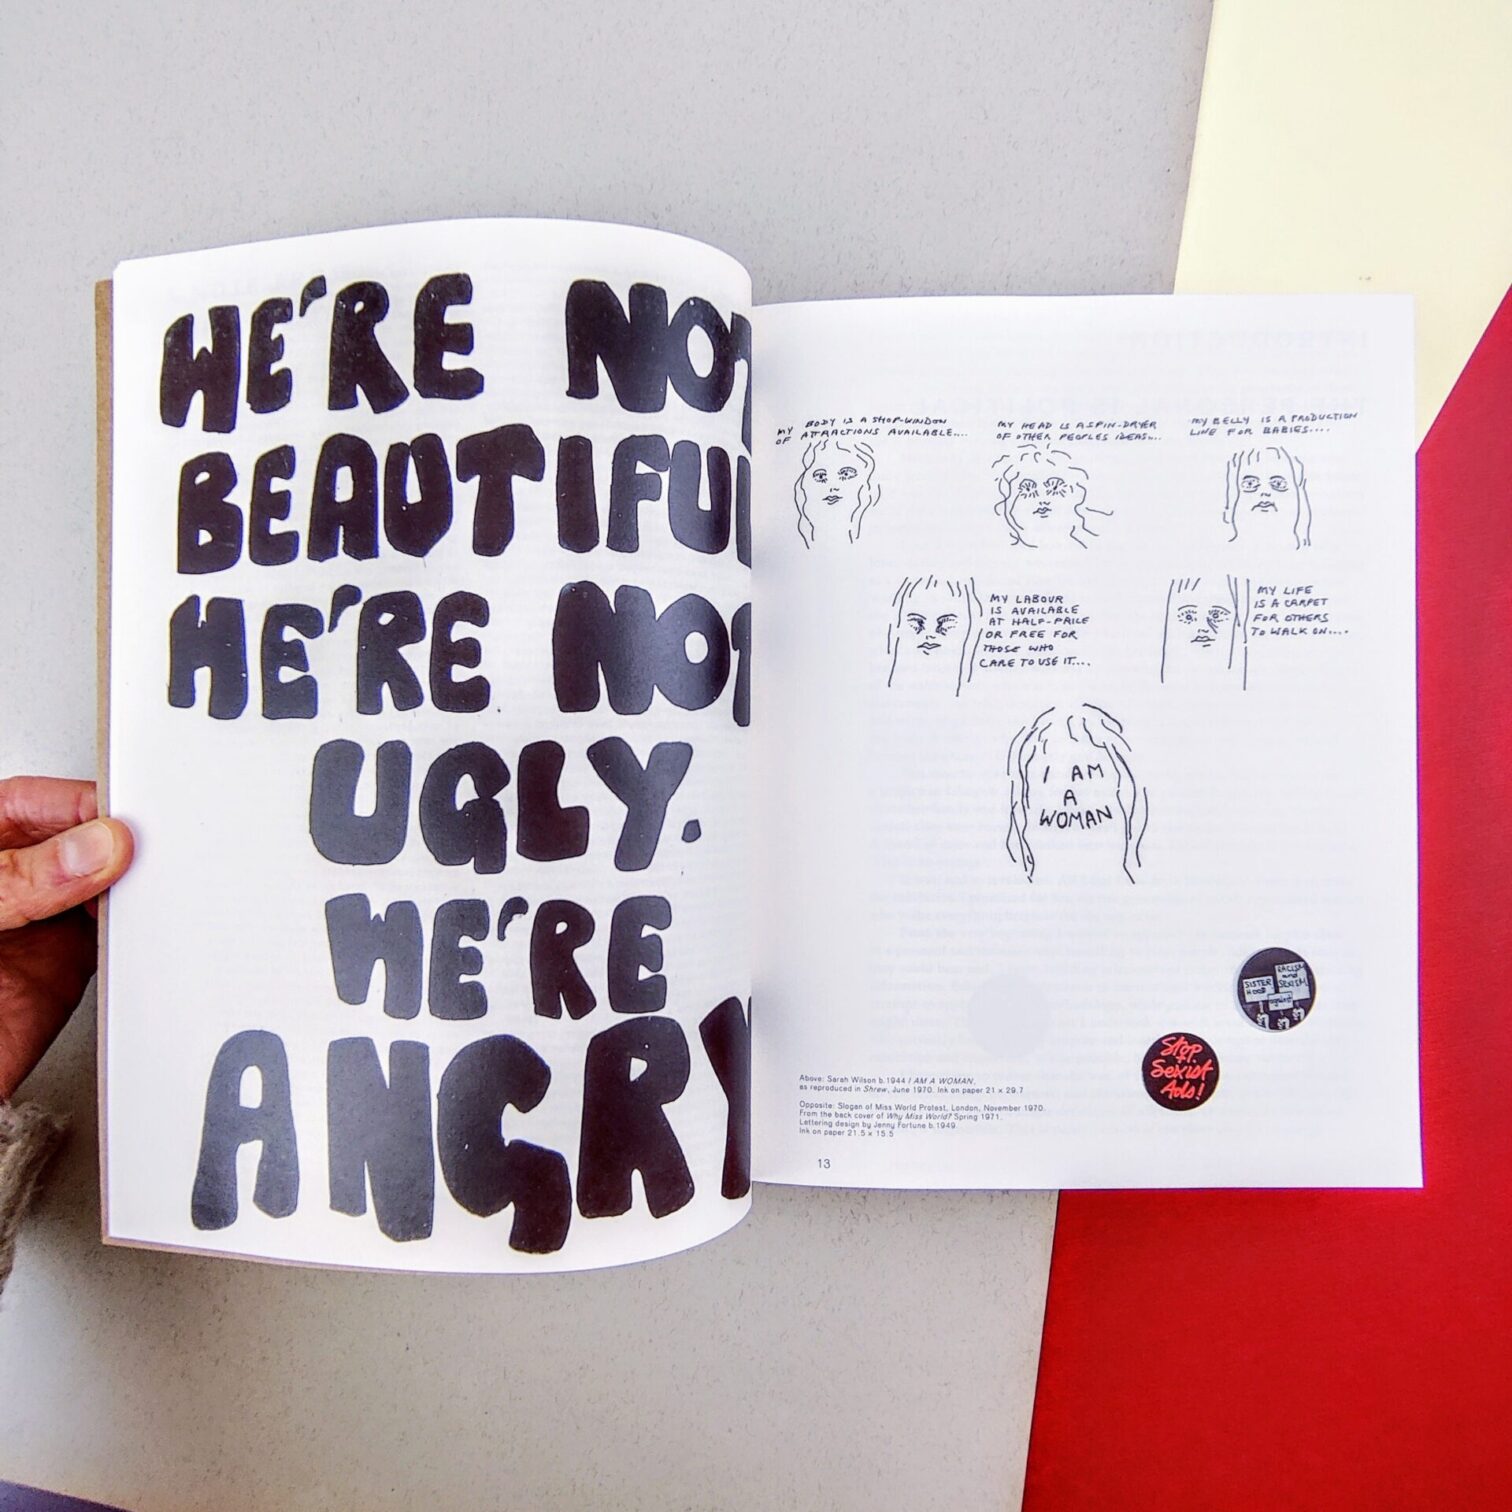 WE'RE NOT
BEAUTIFUL
WE'RE NOT
UGLY.
WE'RE
ANGRY
MY BODY IS A SHOP-WINDOW
OF ATTRACTIONS AVAILABLE....
MY HEAD IS A SPIN-DRYER
OF OTHER PEOPLES IDEAS...
MY BELLY IS A PRODUCTION
LINE FOR BABIES....
MY LABOUR
IS AVAILABLE
AT HALF-PRICE
OR FREE FOR
THOSE WHO
CARE TO USE IT....
MY LIFE
IS A CARPET
FOR OTHERS
TO WALK ON....
I AM
A
WOMAN
SISTER
HOOD
against
RACISM
and
SEXISM
Stop
Sexist
Ads!
Above: Sarah Wilson b.1944 I AM A WOMAN,
as reproduced in Shrew, June 1970. Ink on paper 21 x 29.7
Opposite: Slogan of Miss World Protest, London, November 1970.
From the back cover of Why Miss World? Spring 1971.
Lettering design by Jenny Fortune b.1949.
Ink on paper 21.5 x 15.5
13